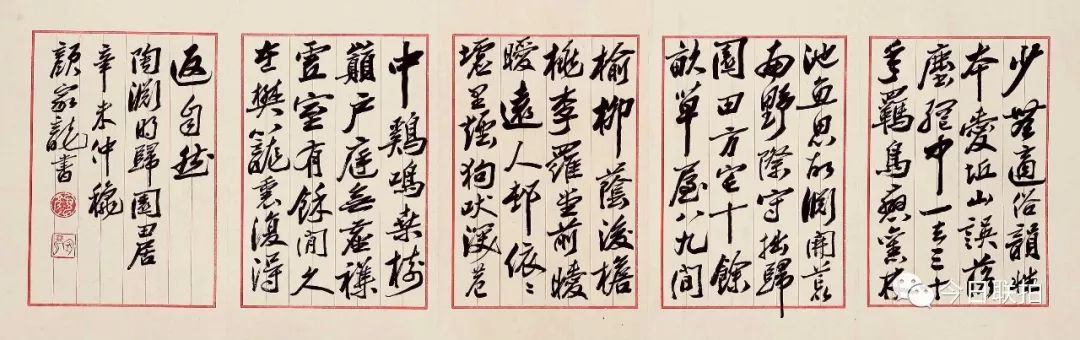 少無適俗韻性
本愛丘山誤落
塵網中一去三十
年羈鳥戀舊林
池魚思故淵開荒
南野際守拙歸
園田方宅十餘
畝草屋八九間
榆柳蔭後檐
桃李羅堂前曖
曖遠人邨依〻
墟里煙狗吠深巷
中鷄鳴桑樹
巔戶庭無塵雜
虛室有餘閒久
在樊籠裏復得
返自然
陶淵明歸園田居
辛未仲龝
顏家龍書
今日联拍